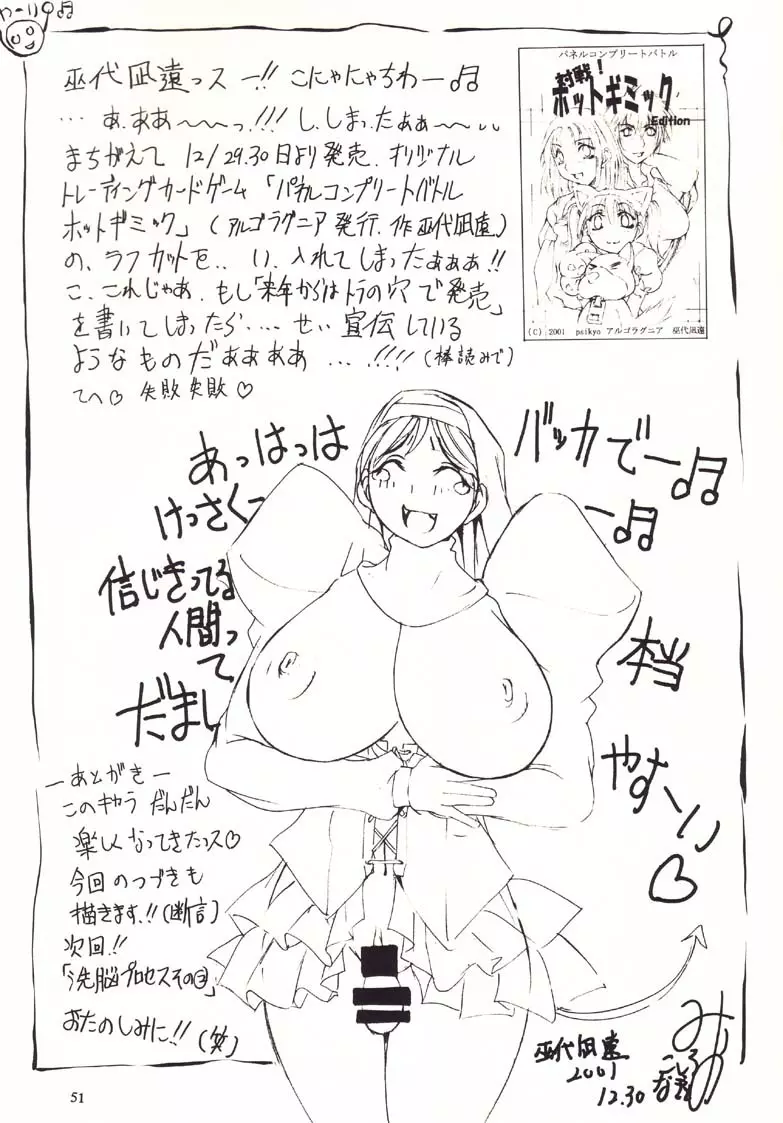 やーいり♫
巫代凪遠っスー!! こにゃにゃちわー♫
…あ、ああぁ〜〜〜っ!!! し、しまったぁぁ〜〜、、、
まちがえて 12/29.30日より発売、オリジナル
トレーディングカードゲーム「パネルコンプリートバトル
ホットギミック」(アルゴラグニア発行、作 巫代凪遠)
の、ラフカットを、、い、入れてしまったぁぁぁ!!
こ、これじゃあ、もし「来年からはトラの穴で発売」
を書いてしまったら‥‥せ、宣伝している
ようなものだぁぁぁぁ…、!!!!(棒読みで)
てへ♡ 失敗失敗♡
パネルコンプリートバトル
対戦!
ホットギミック
Edition
(C) 2001 psikyo アルゴラグニア 巫代凪遠
あっはっは
けっさくっ
バッカでー♫
ー♫
信じきってる
人間っ
て
だまし
本当
やすーい
♡
ーあとがきー
このキャラ だんだん
楽しくなってきたっス♡
今回のつづきも
描きます!!(断言)
次回!!
「洗脳プロセスその3」
おたのしみに!!(笑)
巫代凪遠
2001
12.30
51